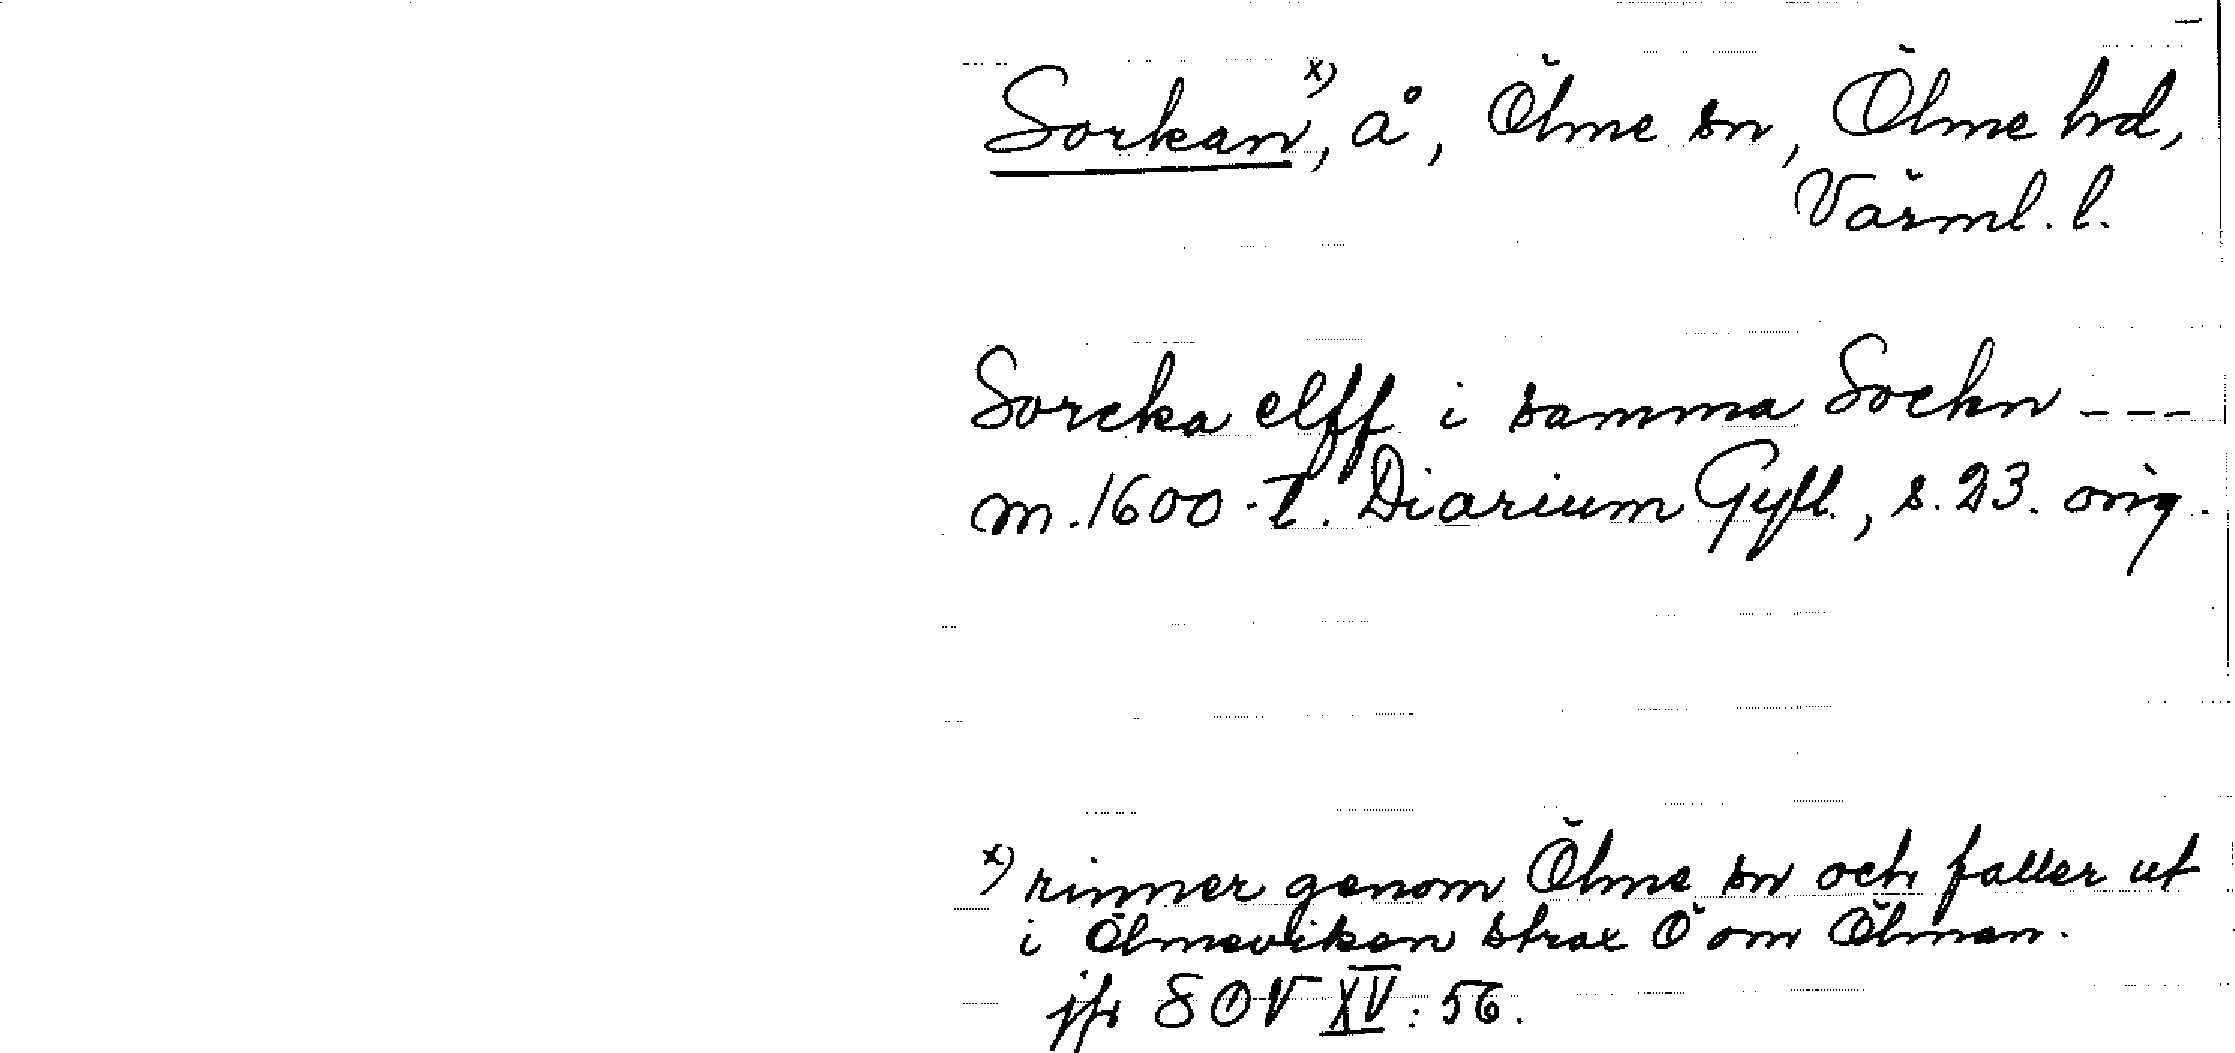 Sorkan x), å, Ölme sn, Ölme hd,
Värml. l.
Sorcka elff i samma Sockn ---
m. 1600-t. Diarium Gyll., s. 23. orig.
x) rinner genom Ölme sn och faller ut
i Ölmeviken strax Ö om Ölman.
jfr SOV XV: 56.